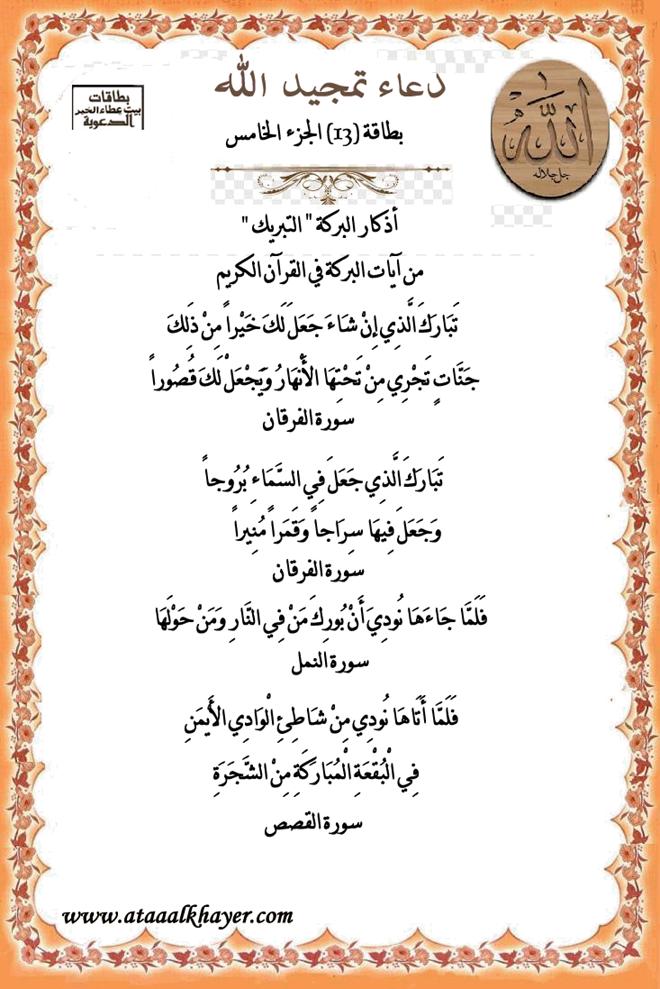 دعاء تمجيد الله
بطاقات
بيت عطاء الخير
الدعوية
الله
جل جلاله
بطاقة (13) الجزء الخامس
أذكار البركة " التبريك "
من آيات البركة في القرآن الكريم
تَبَارَكَ الَّذِي إِنْ شَاءَ جَعَلَ لَكَ خَيْراً مِنْ ذَلِكَ
جَنَّاتٍ تَجْرِي مِنْ تَحْتِهَا الأَنْهَارُ وَيَجْعَلْ لَكَ قُصُوراً
سورة الفرقان
تَبَارَكَ الَّذِي جَعَلَ فِي السَّمَاءِ بُرُوجاً
وَجَعَلَ فِيهَا سِرَاجاً وَقَمَراً مُنِيراً
سورة الفرقان
فَلَمَّا جَاءَهَا نُودِيَ أَنْ بُورِكَ مَنْ فِي النَّارِ وَمَنْ حَوْلَهَا
سورة النمل
فَلَمَّا أَتَاهَا نُودِي مِنْ شَاطِئِ الْوَادِي الأَيمَنِ
فِي الْبُقْعَةِ الْمُبَارَكَةِ مِنْ الشَّجَرَةِ
سورة القصص
www.ataaalkhayer.com